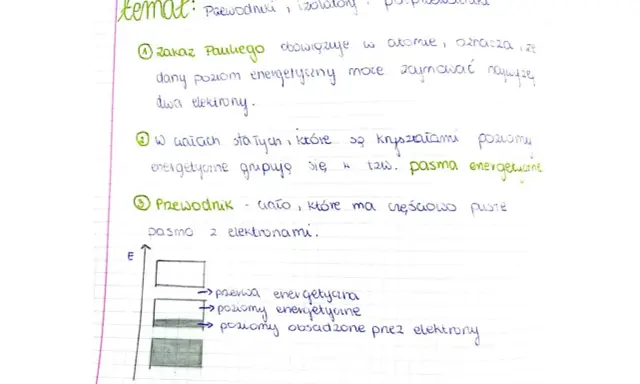 temat: Przewodniki, izolatory i półprzewodniki
① Zakaz Pauliego obowiązuje w atomie, oznacza, że
dany poziom energetyczny może zajmować najwyżej
dwa elektrony.
② W ciałach stałych, które są kryształami poziomy
energetyczne grupują się w tzw. pasma energetyczne
③ Przewodnik - ciało, które ma częściowo puste
pasmo z elektronami.
E
→ przerwa energetyczna
→ poziomy energetyczne
→ poziomy obsadzone przez elektrony